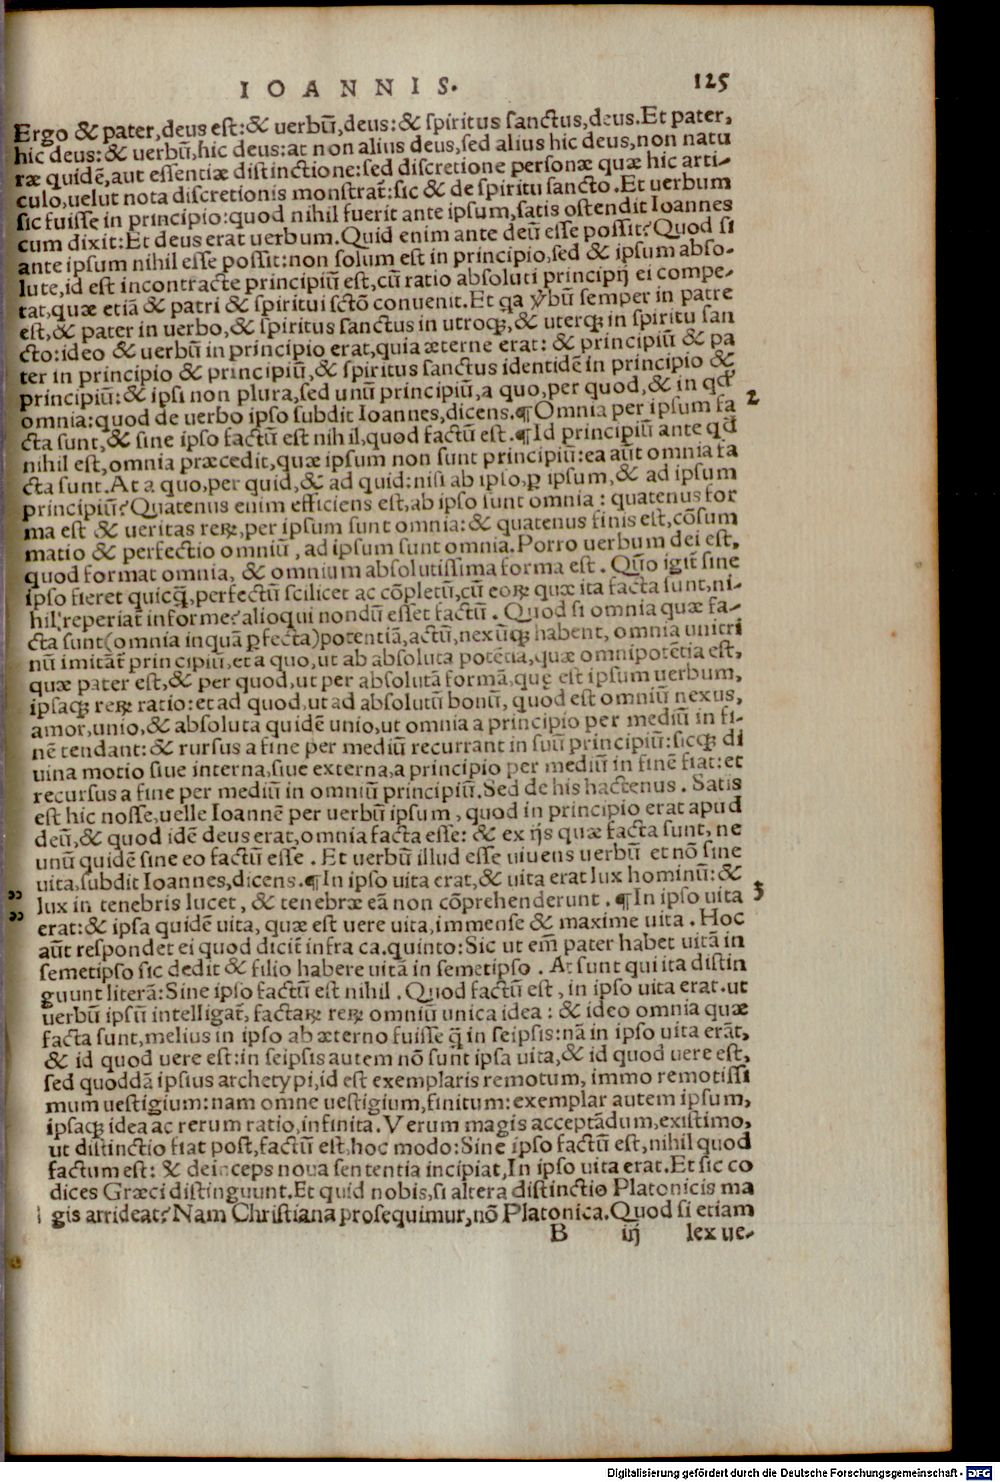 IOANNIS. 125
Ergo & pater,deus est:& uerbū,deus:& spiritus sanctus,deus.Et pater,
hic deus:& uerbū,hic deus:at non alius deus,sed alius hic deus,non natu
ræ quidē,aut essentiæ distinctione:sed discretione personæ quæ hic arti-
culo,uelut nota discretionis monstrat̃:sic & de spiritu sancto.Et uerbum
sic fuisse in principio:quod nihil fuerit ante ipsum,satis ostendit Ioannes
cum dixit:Et deus erat uerbum.Quid enim ante deū esse possit?Quod si
ante ipsum nihil esse possit:non solum est in principio,sed & ipsum abso-
lute,id est incontracte principiū est,cū ratio absoluti principij ei compe-
tat,quæ etiā & patri & spiritui sctō conuenit.Et qa v̓bū semper in patre
est,& pater in uerbo,& spiritus sanctus in utroqꝫ,& uterqꝫ in spiritu san
cto:ideo & uerbū in principio erat,quia æterne erat: & principiū & pa
ter in principio & principiū,& spiritus sanctus identidē in principio &
principiū:& ipsi non plura,sed unū principiū,a quo,per quod,& in qđ
omnia:quod de uerbo ipso subdit Ioannes,dicens.¶Omnia per ipsum fa 2
cta sunt,& sine ipso factū est nihil,quod factū est.¶Id principiū ante qđ
nihil est,omnia præcedit,quæ ipsum non sunt principiū:ea aūt omnia fa
cta sunt.At a quo,per quid,& ad quid:nisi ab ipso,ꝑ ipsum,& ad ipsum
principiū?Quatenus enim efficiens est,ab ipso sunt omnia : quatenus for
ma est & ueritas reꝝ,per ipsum sunt omnia:& quatenus finis est,cōsum
matio & perfectio omniū, ad ipsum sunt omnia.Porro uerbum dei est,
quod format omnia, & omnium absolutissima forma est . Quō igit̃ sine
ipso fieret quicq̃,perfectū scilicet ac cōpletū,cū eoꝝ quæ ita facta sunt,ni-
hil reperiat̃ informe?alioqui nondū esset factū . Quod si omnia quæ fa-
cta sunt(omnia inquā ꝑfecta)potentiā,actū,nexūqꝫ habent, omnia unitri
nū imitāt̃ principiū,et a quo,ut ab absoluta potētia,quæ omnipotētia est,
quæ pater est,& per quod,ut per absolutā formā,quę est ipsum uerbum,
ipsaqꝫ reꝝ ratio:et ad quod,ut ad absolutū bonū, quod est omniū nexus,
amor,unio,& absoluta quidē unio,ut omnia a principio per mediū in fi-
nē tendant:& rursus a fine per mediū recurrant in suū principiū:sicqꝫ di
uina motio siue interna,siue externa,a principio per mediū in finē fiat:et
recursus a fine per mediū in omniū principiū.Sed de his hactenus . Satis
est hic nosse,uelle Ioannē per uerbū ipsum , quod in principio erat apud
deū,& quod idē deus erat,omnia facta esse: & ex ijs quæ facta sunt, ne
unū quidē sine eo factū esse . Et uerbū illud esse uiuens uerbū et nō sine
uita,subdit Ioannes,dicens.¶In ipso uita erat,& uita erat lux hominū:& 3
lux in tenebris lucet , & tenebræ eā non cōprehenderunt . ¶In ipso uita
erat:& ipsa quidē uita, quæ est uere uita,immense & maxime uita . Hoc
aūt respondet ei quod dicit̃ infra ca.quinto:Sic ut em̄ pater habet uitā in
semetipso sic dedit & filio habere uitā in semetipso . At sunt qui ita distin
guunt literā:Sine ipso factū est nihil . Quod factū est , in ipso uita erat.ut
uerbū ipsū intelligat̃, factaꝝ reꝝ omniū unica idea : & ideo omnia quæ
facta sunt,melius in ipso ab æterno fuisse q̃ in seipsis:nā in ipso uita erāt,
& id quod uere est:in seipsis autem nō sunt ipsa uita,& id quod uere est,
sed quoddā ipsius archetypi,id est exemplaris remotum, immo remotissi
mum uestigium:nam omne uestigium,finitum:exemplar autem ipsum,
ipsaqꝫ idea ac rerum ratio,infinita. Verum magis acceptādum,existimo,
ut distinctio fiat post,factū est,hoc modo:Sine ipso factū est,nihil quod
factum est: & deinceps noua sententia incipiat,In ipso uita erat.Et sic co
dices Græci distinguunt.Et quid nobis,si altera distinctio Platonicis ma
gis arrideat?Nam Christiana prosequimur,nō Platonica.Quod si etiam
B iij lex ue-
Digitalisierung gefördert durch die Deutsche Forschungsgemeinschaft - DFG